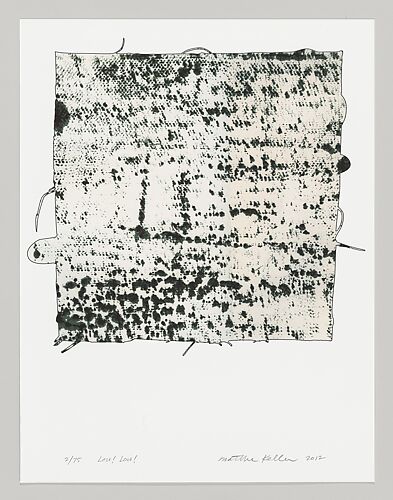 2/75 Lou! Lou! Marthe Keller 2012